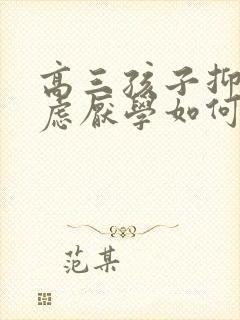 高三孩子抑
虑厌學如何
范某